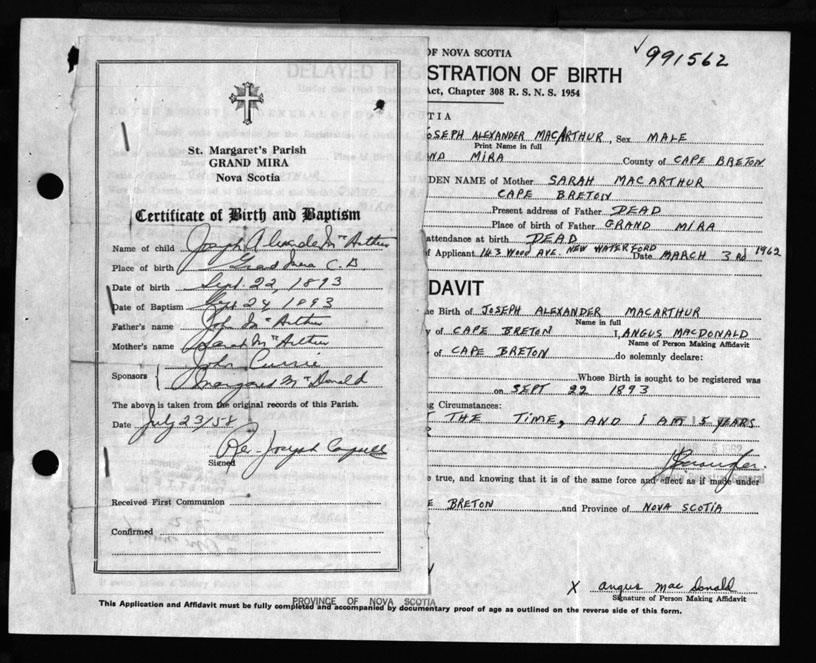 St. Margaret's Parish
GRAND MIRA
Nova Scotia
Certificate of Birth and Baptism
Name of child Joseph Alexande McArthur
Place of birth Grand Mira C.B.
Date of birth Sept. 22, 1893
Date of Baptism Sept 24, 1893
Father's name John McArthur
Mother's name Sarah McArthur
Sponsors John Currie
Margaret McDonald
The above is taken from the original records of this Parish.
Date July 23/58
Rev. Joseph
Signed
Received First Communion
Confirmed
OF NOVA SCOTIA
991562
DELAYED REG
STRATION OF BIRTH
Act, Chapter 308 R. S. N. S. 1954
TIA
JOSEPH ALEXANDER MACARTHUR, Sex MALE
Print Name in full
ND MIRA County of CAPE BRETON
DEN NAME of Mother SARAH MACARTHUR
CAPE BRETON
Present address of Father DEAD
Place of birth of Father GRAND MIRA
attendance at birth DEAD
of Applicant 143 WOOD AVE. NEW WATERFORD Date MARCH 3RD 1962
DAVIT
he Birth of JOSEPH ALEXANDER MACARTHUR
Name in full
y of CAPE BRETON I, ANGUS MACDONALD
Name of Person Making Affidavit
of CAPE BRETON do solemnly declare:
Whose Birth is sought to be registered was
on SEPT 22 1893
ng Circumstances:
T THE TIME, AND I AM 5 YEARS
R
e true, and knowing that it is of the same force and effect as if made under
E BRETON and Province of NOVA SCOTIA
X Angus MacDonald
Signature of Person Making Affidavit
PROVINCE OF NOVA SCOTIA
This Application and Affidavit must be fully completed and accompanied by documentary proof of age as outlined on the reverse side of this form.